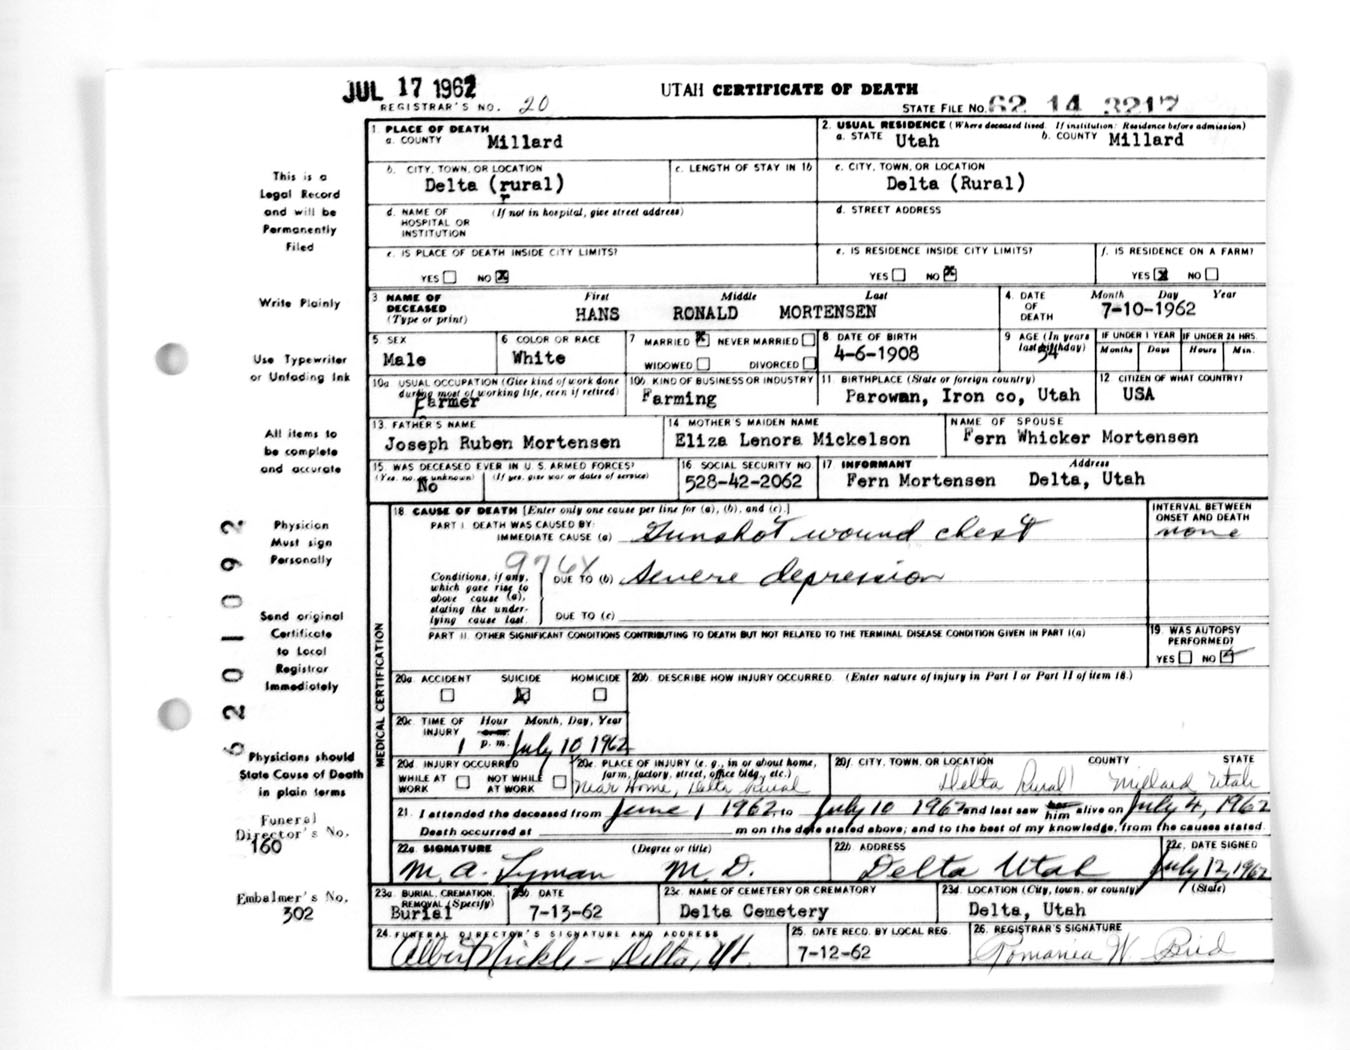 JUL 17 1962
UTAH CERTIFICATE OF DEATH
REGISTRAR'S NO. 20
STATE FILE NO. 62 14 3217
1. PLACE OF DEATH
a. COUNTY Millard
2. USUAL RESIDENCE (Where deceased lived. If institution: Residence before admission)
a. STATE Utah b. COUNTY Millard
b. CITY, TOWN, OR LOCATION
Delta (rural)
r
c. LENGTH OF STAY IN 1b
c. CITY, TOWN, OR LOCATION
Delta (Rural)
d. NAME OF HOSPITAL OR INSTITUTION (If not in hospital, give street address)
d. STREET ADDRESS
e. IS PLACE OF DEATH INSIDE CITY LIMITS?
YES NO X
e. IS RESIDENCE INSIDE CITY LIMITS?
YES NO X
f. IS RESIDENCE ON A FARM?
YES X NO
3 NAME OF DECEASED (Type or print)
First Middle Last
HANS RONALD MORTENSEN
4. DATE OF DEATH Month Day Year
7-10-1962
5 SEX
Male
6 COLOR OR RACE
White
7 MARRIED X NEVER MARRIED
WIDOWED DIVORCED
8 DATE OF BIRTH
4-6-1908
9 AGE (In years last birthday)
54
IF UNDER 1 YEAR IF UNDER 24 HRS.
Months Days Hours Min.
10a USUAL OCCUPATION (Give kind of work done during most of working life, even if retired)
Farmer
10b. KIND OF BUSINESS OR INDUSTRY
Farming
11. BIRTHPLACE (State or foreign country)
Parowan, Iron co, Utah
12 CITIZEN OF WHAT COUNTRY?
USA
13. FATHER'S NAME
Joseph Ruben Mortensen
14 MOTHER'S MAIDEN NAME
Eliza Lenora Mickelson
NAME OF SPOUSE
Fern Whicker Mortensen
15 WAS DECEASED EVER IN U.S. ARMED FORCES?
(Yes, no, or unknown) (If yes, give war or dates of service)
No
16 SOCIAL SECURITY NO.
528-42-2062
17 INFORMANT Address
Fern Mortensen Delta, Utah
18 CAUSE OF DEATH [Enter only one cause per line for (a), (b), and (c).]
PART I. DEATH WAS CAUSED BY:
IMMEDIATE CAUSE (a) Gunshot wound chest
INTERVAL BETWEEN ONSET AND DEATH
none
976X
Conditions, if any, which gave rise to above cause (a), stating the underlying cause last.
DUE TO (b) Severe depression
DUE TO (c)
PART II. OTHER SIGNIFICANT CONDITIONS CONTRIBUTING TO DEATH BUT NOT RELATED TO THE TERMINAL DISEASE CONDITION GIVEN IN PART I(a)
19. WAS AUTOPSY PERFORMED?
YES NO
20a. ACCIDENT SUICIDE HOMICIDE
20b. DESCRIBE HOW INJURY OCCURRED. (Enter nature of injury in Part I or Part II of item 18.)
20c. TIME OF INJURY Hour Month, Day, Year
1 a.m. p.m. July 10 1962
20d. INJURY OCCURRED
WHILE AT WORK NOT WHILE AT WORK
20e. PLACE OF INJURY (e. g., in or about home, farm, factory, street, office bldg., etc.)
Near Home, Delta Rural
20f. CITY, TOWN, OR LOCATION COUNTY STATE
Delta Rural Millard Utah
21. I attended the deceased from June 1 1962, to July 10 1962 and last saw her him alive on July 4, 1962
Death occurred at m on the date stated above; and to the best of my knowledge, from the causes stated.
22a. SIGNATURE (Degree or title)
M. A. Lyman M. D.
22b ADDRESS
Delta Utah
22c. DATE SIGNED
July 12, 1962
23a. BURIAL, CREMATION, REMOVAL (Specify)
Burial
23b DATE
7-13-62
23c. NAME OF CEMETERY OR CREMATORY
Delta Cemetery
23d. LOCATION (City, town, or county) (State)
Delta, Utah
24. FUNERAL DIRECTOR'S SIGNATURE AND ADDRESS
Albert Nickle - Delta, Ut.
25. DATE RECD. BY LOCAL REG.
7-12-62
26. REGISTRAR'S SIGNATURE
Romania W. Brid
MEDICAL CERTIFICATION
This is a
Legal Record
and will be
Permanently
Filed
Write Plainly
Use Typewriter
or Unfading Ink
All items to
be complete
and accurate
Physician
Must sign
Personally
Send original
Certificate
to Local
Registrar
Immediately
Physicians should
State Cause of Death
in plain terms
Funeral
Director's No.
160
Embalmer's No.
302
62 01092